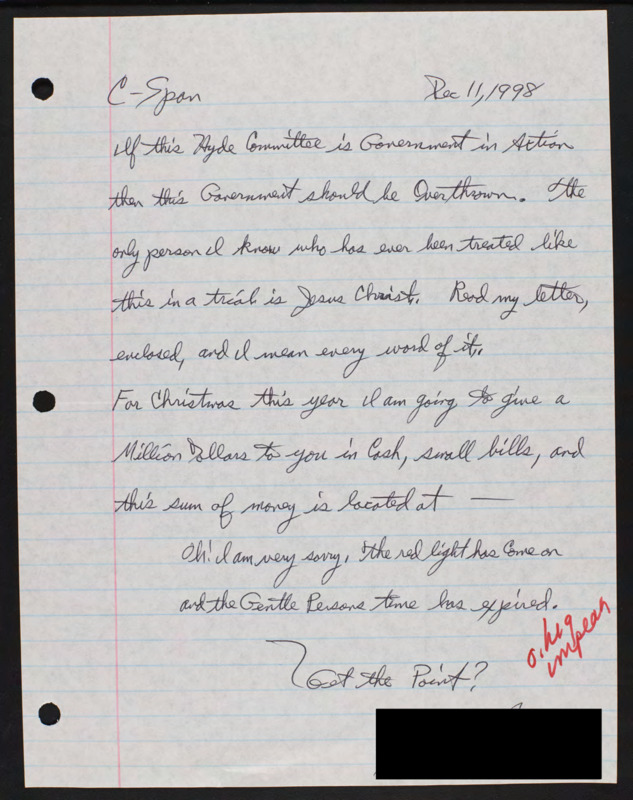 C-Span Dec 11, 1998
If this Hyde Committee is Government in Action
then this Government should be Overthrown. The
only person I know who has ever been treated like
this in a trial is Jesus Christ. Read my letter,
enclosed, and I mean every word of it.
For Christmas this year I am going to give a
Million Dollars to you in Cash, small bills, and
this sum of money is located at —
Oh! I am very sorry, the red light has Come on
and the Gentle Persons time has expired.
Get the Point?
impeach